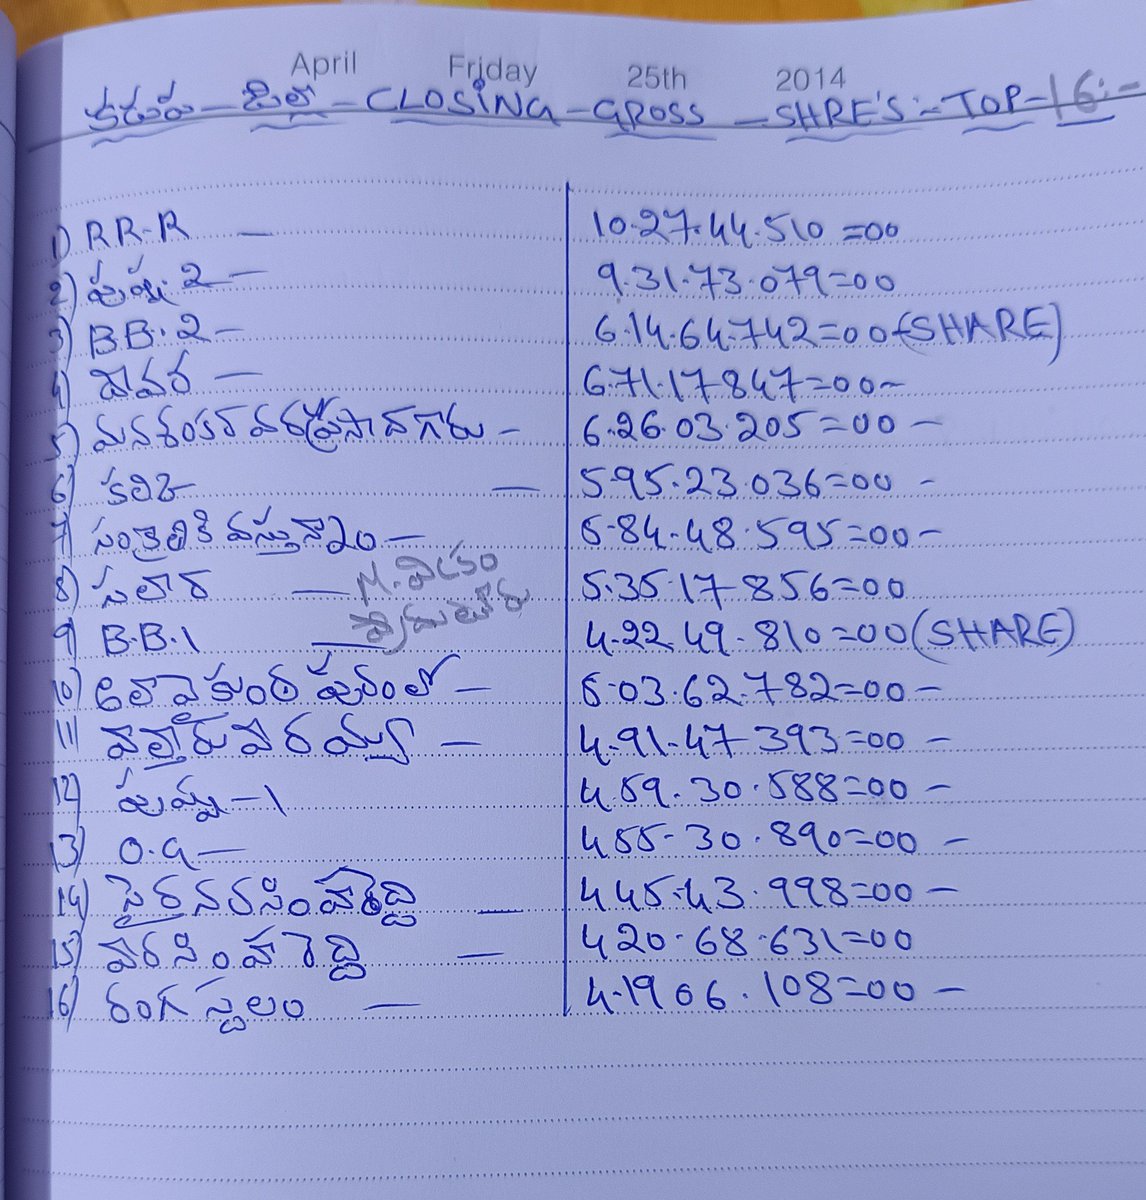 April Friday 25th 2014
కడప - జిల్లా - CLOSING - GROSS - SHRE'S :- TOP - 16 :-
1) RR-R — 10.27.44.510=00
2) పుష్ప: 2 — 9.31.73.079=00
3) BB: 2 — 6.14.64.742=00-(SHARE)
4) దేవర — 6.71.17847=00~
5) మనశంకరవరప్రసాదగారు — 6.26.03.205=00 —
6) కల్కి — 595.23.036=00 -
7) సంక్రాంతికి వస్తున్నాం — 5.84.48.595=00-
8) సలార్ — 5.35.17 856=00
M. విక్రం
ప్రొద్దుటూరు
9) B.B.1 — 4.22 49.810=00(SHARE)
10) అలావైకుంఠపురంలో — 5.03.62.782=00-
11) వాల్తేరు వీరయ్య — 4.91.47 393=00 —
12) పుష్ప-1 4 59.30.588=00 —
13) O.G — 455-30.890=00 —
14) సైరానరసింహారెడ్డి — 445.43.998=00 —
15) వీరసింహారెడ్డి — 420.68.631=00
16) రంగస్థలం — 4.1906.108=00 —